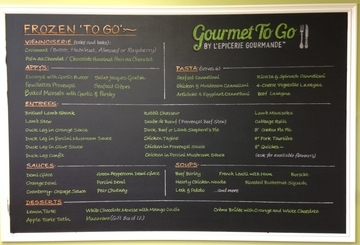 FROZEN 'TO GO'~
Gourmet To Go
BY L'EPICERIE GOURMANDE™
VIENNOISERIE (bake and take):
Croissant (Butter, Hazelnut, Almond or Raspberry)
Pain au Chocolat / Chocolate Hazelnut Pain au Chocolat
APPYS:
PASTA (serves 2)
Escargot with Garlic Butter
Coquilles St Jacques Gratin
Feuilletées Provençal
Seafood Crêpes
Baked Mussels with Garlic & Parsley
Seafood Cannelloni
Ricotta & Spinach Cannelloni
Chicken & Mushroom Cannelloni
4-Cheese Vegetable Lasagna
Artichoke & Eggplant Cannelloni
Beef Lasagna
ENTREES:
Braised Lamb Shank
Rabbit Chasseur
Lamb Moussaka
Lamb Stew
Boeuf (Provençal Beef Stew)
Cabbage Rolls
Duck Leg in Orange Sauce
Duck, Beef or Lamb Shepherd's Pie
8" Chicken Pot Pie
Duck Leg in Porcini Mushroom Sauce
Chicken Tagine
8" Pork Tourtière
Duck Leg in Olive Sauce
Chicken in Provençal Sauce
8" Quiches ~
Duck Leg Confit
Chicken in Porcini Mushroom Sauce
(ask for available flavours)
SAUCES:
SOUPS:
Demi Glaze
Green Peppercorn Demi Glaze
Beef Barley
French Lentil with Ham
Borscht
Orange Demi
Porcini Demi
Hearty Chicken Noodle
Roasted Butternut Squash
Cranberry-Orange Sauce
Pear Chutney
Leek & Potato
...and more
DESSERTS
Lemon Tarte
White Chocolate Mousse with Mango Coulis
Crème Brûlée with Orange and White Chocolate
Apple Tarte Tatin
Macarons (Gift Box of 12)